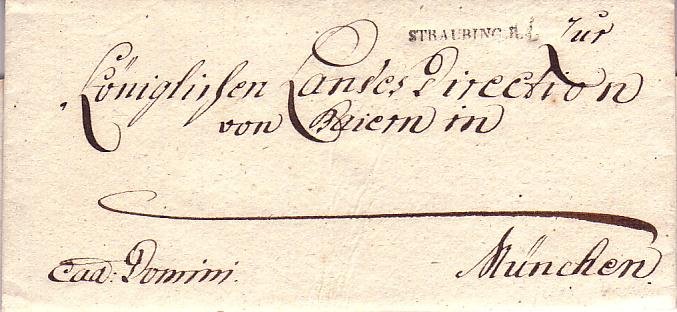 STRAUBING.R.4. Zur
Königlichen Landes Direction
von Baiern in
München
Cad: Domini.